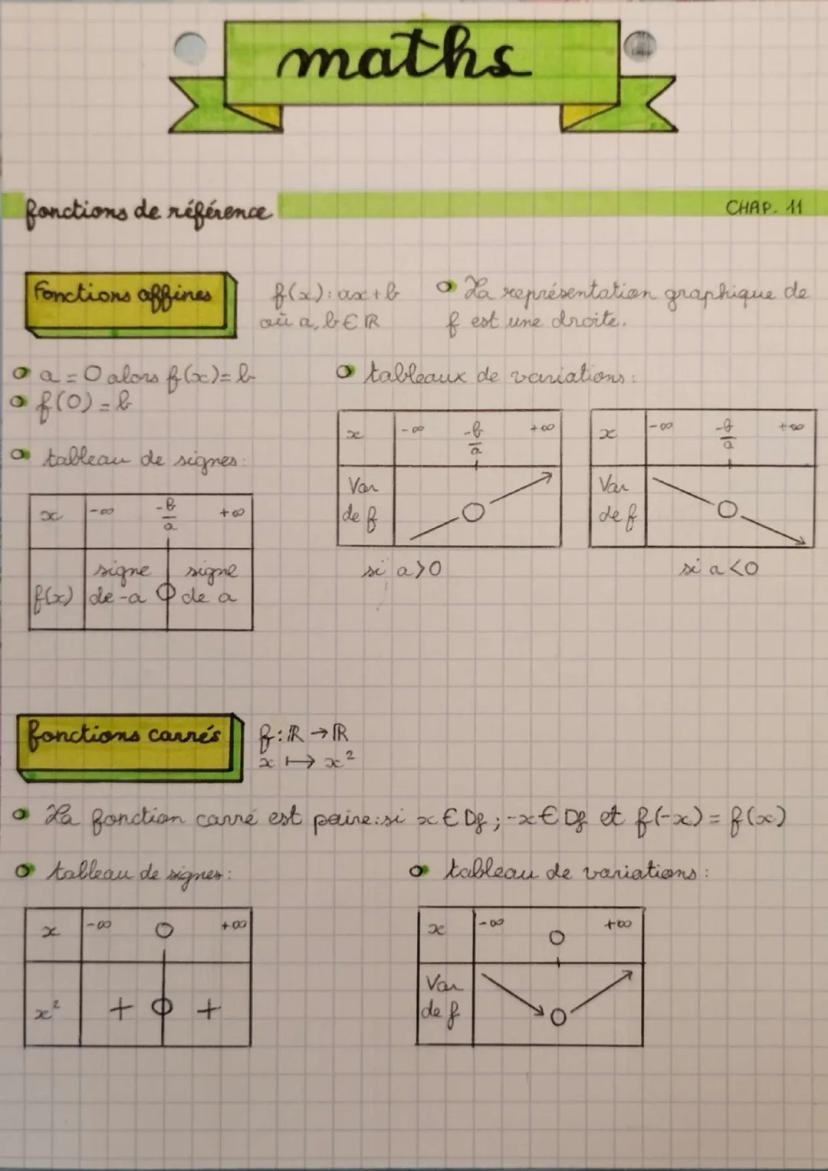 maths
fonctions de référence
CHAP. 11
Fonctions affines
f(x) : ax + b
où a, b ∈ ℝ
La représentation graphique de
f est une droite.
a = 0 alors f(x) = b
f(0) = b
tableau de signes :
x -∞ -b/a +∞
f(x) signe de -a 0 signe de a
tableaux de variations :
x -∞ -b/a +∞
Var de f 0
si a > 0
x -∞ -b/a +∞
Var de f 0
si a < 0
fonctions carrés
f : ℝ → ℝ
x ↦ x²
La fonction carré est paire : si x ∈ Df ; -x ∈ Df et f(-x) = f(x)
tableau de signes :
x -∞ 0 +∞
x² + 0 +
tableau de variations :
x -∞ 0 +∞
Var de f 0